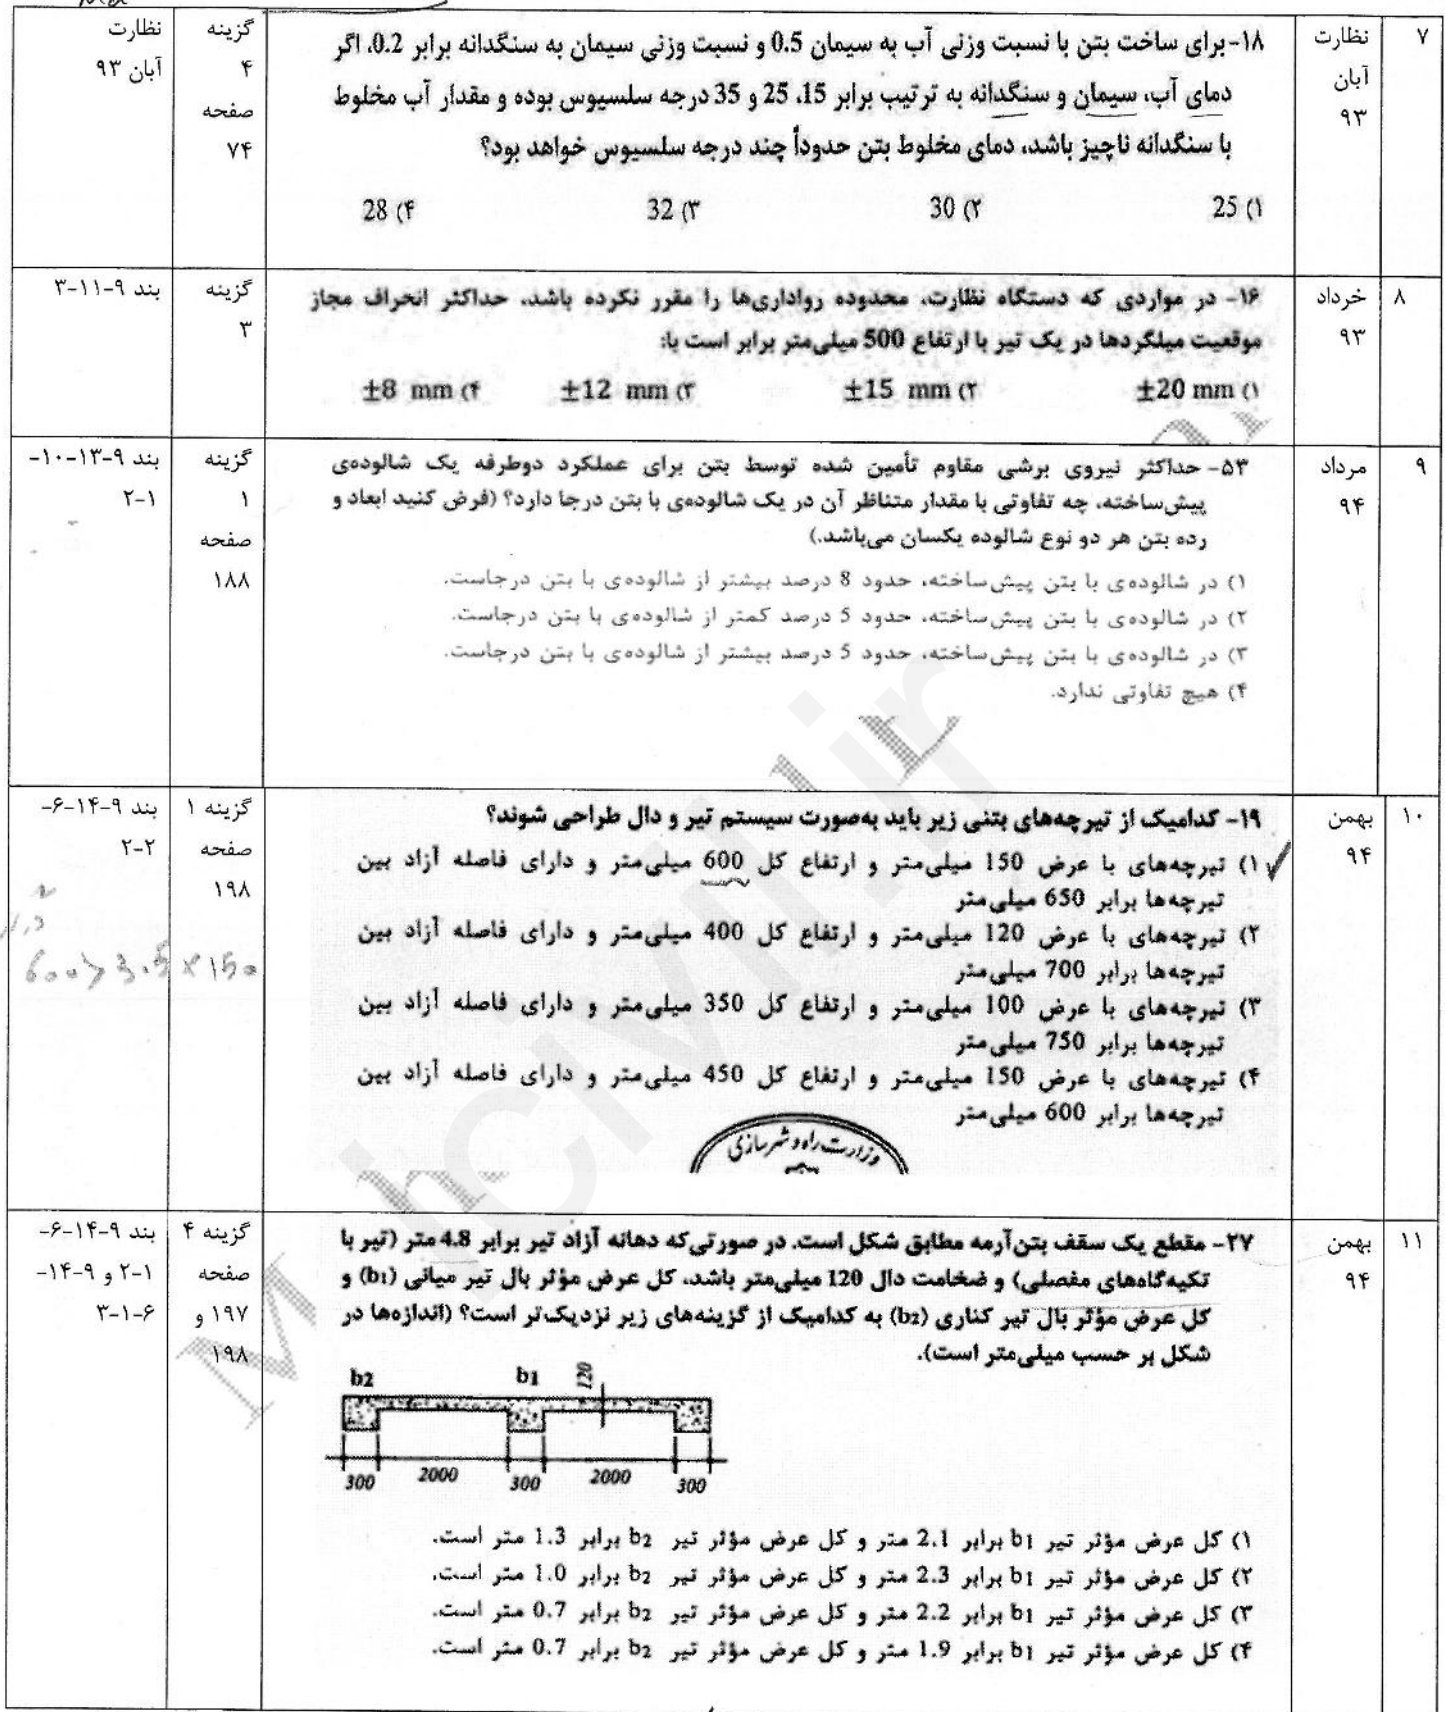 ۷
نظارت
آبان
۹۳
۱۸-برای ساخت بتن با نسبت وزنی آب به سیمان 0.5 و نسبت وزنی سیمان به سنگدانه برابر 0.2، اگر
دمای آب، سیمان و سنگدانه به ترتیب برابر 15، 25 و 35 درجه سلسیوس بوده و مقدار آب مخلوط
با سنگدانه ناچیز باشد، دمای مخلوط بتن حدوداً چند درجه سلسیوس خواهد بود؟
۱) 25 ۲) 30 ۳) 32 ۴) 28
گزینه
۴
صفحه
۷۴
نظارت
آبان ۹۳
۸
خرداد
۹۳
۱۶- در مواردی که دستگاه نظارت، محدوده رواداری‌ها را مقرر نکرده باشد، حداکثر انحراف مجاز
موقعیت میلگردها در یک تیر با ارتفاع 500 میلی‌متر برابر است با:
۱) ±20 mm ۲) ±15 mm ۳) ±12 mm ۴) ±8 mm
گزینه
۳
بند ۹-۱۱-۳
۹
مرداد
۹۴
۵۳- حداکثر نیروی برشی مقاوم تأمین شده توسط بتن برای عملکرد دوطرفه یک شالوده‌ی
پیش‌ساخته، چه تفاوتی با مقدار متناظر آن در یک شالوده‌ی با بتن درجا دارد؟ (فرض کنید ابعاد و
رده بتن هر دو نوع شالوده یکسان می‌باشد.)
۱) در شالوده‌ی با بتن پیش‌ساخته، حدود 8 درصد بیشتر از شالوده‌ی با بتن درجاست.
۲) در شالوده‌ی با بتن پیش‌ساخته، حدود 5 درصد کمتر از شالوده‌ی با بتن درجاست.
۳) در شالوده‌ی با بتن پیش‌ساخته، حدود 5 درصد بیشتر از شالوده‌ی با بتن درجاست.
۴) هیچ تفاوتی ندارد.
گزینه
۱
صفحه
۱۸۸
بند ۹-۱۳-۱۰-
۲-۱
۱۰
بهمن
۹۴
۱۹- کدامیک از تیرچه‌های بتنی زیر باید به‌صورت سیستم تیر و دال طراحی شوند؟
۱) تیرچه‌های با عرض 150 میلی‌متر و ارتفاع کل 600 میلی‌متر و دارای فاصله آزاد بین
تیرچه‌ها برابر 650 میلی‌متر
۲) تیرچه‌های با عرض 120 میلی‌متر و ارتفاع کل 400 میلی‌متر و دارای فاصله آزاد بین
تیرچه‌ها برابر 700 میلی‌متر
۳) تیرچه‌های با عرض 100 میلی‌متر و ارتفاع کل 350 میلی‌متر و دارای فاصله آزاد بین
تیرچه‌ها برابر 750 میلی‌متر
۴) تیرچه‌های با عرض 150 میلی‌متر و ارتفاع کل 450 میلی‌متر و دارای فاصله آزاد بین
تیرچه‌ها برابر 600 میلی‌متر
وزارت راه و شهرسازی
گزینه ۱
صفحه
۱۹۸
بند ۹-۱۴-۶-
۲-۲
600 > 3.5 × 150
۱۱
بهمن
۹۴
۲۷- مقطع یک سقف بتن‌آرمه مطابق شکل است. در صورتی‌که دهانه آزاد تیر برابر 4.8 متر (تیر با
تکیه‌گاه‌های مفصلی) و ضخامت دال 120 میلی‌متر باشد، کل عرض مؤثر بال تیر میانی (b1) و
کل عرض مؤثر بال تیر کناری (b2) به کدامیک از گزینه‌های زیر نزدیک‌تر است؟ (اندازه‌ها در
شکل بر حسب میلی‌متر است).
b2 b1 120
300 2000 300 2000 300
۱) کل عرض مؤثر تیر b1 برابر 2.1 متر و کل عرض مؤثر تیر b2 برابر 1.3 متر است.
۲) کل عرض مؤثر تیر b1 برابر 2.3 متر و کل عرض مؤثر تیر b2 برابر 1.0 متر است.
۳) کل عرض مؤثر تیر b1 برابر 2.2 متر و کل عرض مؤثر تیر b2 برابر 0.7 متر است.
۴) کل عرض مؤثر تیر b1 برابر 1.9 متر و کل عرض مؤثر تیر b2 برابر 0.7 متر است.
گزینه ۴
صفحه
۱۹۷ و
۱۹۸
بند ۹-۱۴-۶-
۲-۱ و ۹-۱۴-
۶-۱-۳